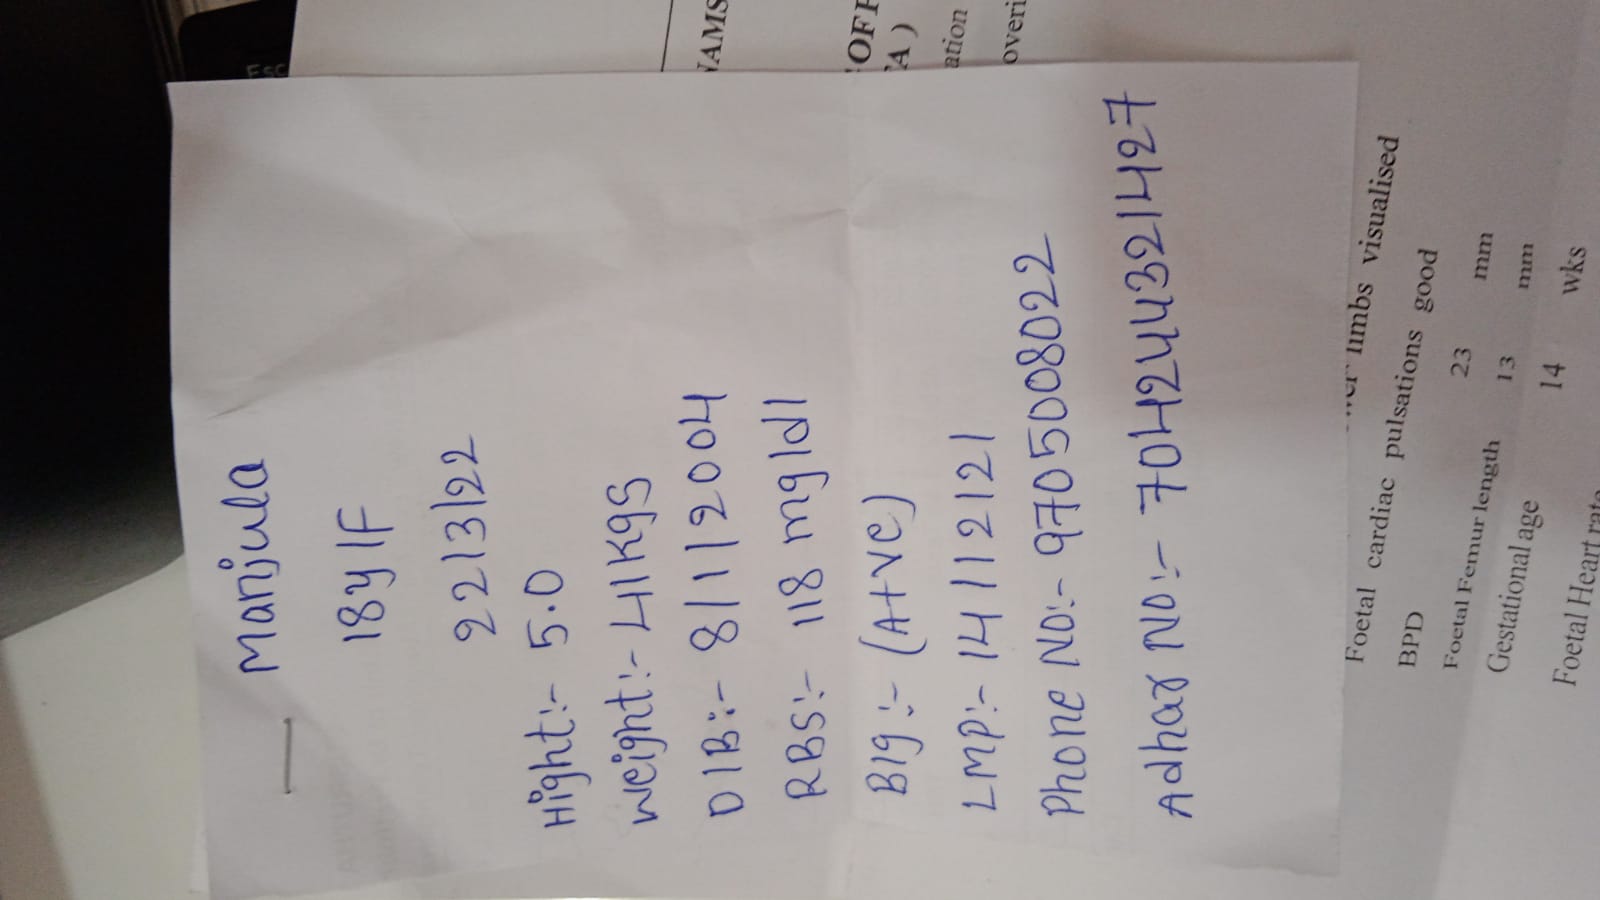 Manjula
18y/F
22/3/22
Hight:- 5.0
Weight:- 41kgs
D/B:- 8/1/2004
RBS:- 118 mg/dl
B/g:- (A+ve)
LMP:- 14/12/21
Phone No:- 9705008022
Adhar No:- 704244321427
NAMS
OFF
A)
ation
overi
limbs visualised
Foetal cardiac pulsations good
BPD 23 mm
Foetal Femur length 13 mm
Gestational age 14 wks
Foetal Heart rate
Esc